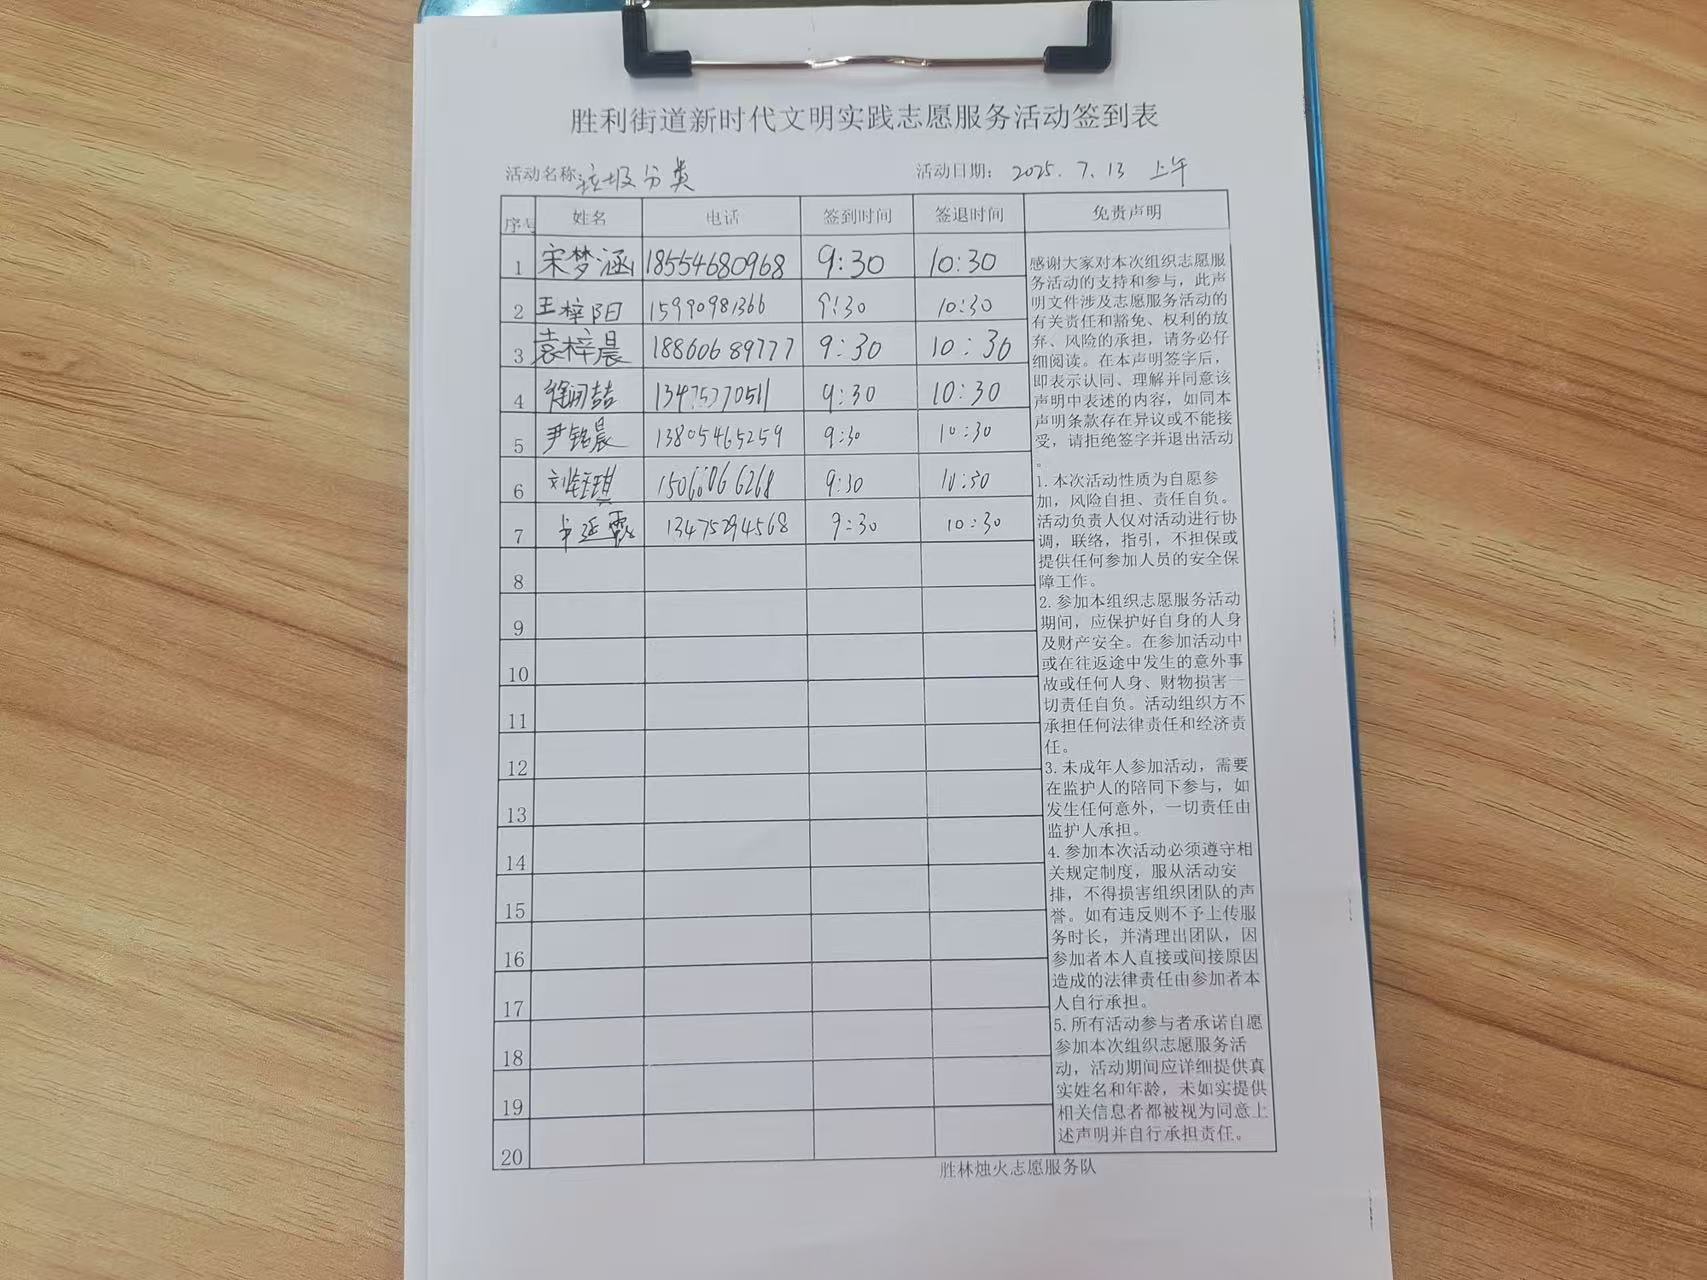 胜利街道新时代文明实践志愿服务活动签到表
活动名称:垃圾分类 活动日期: 2025.7.13 上午
序号 姓名 电话 签到时间 签退时间 免责声明
1 宋梦涵 18554680968 9:30 10:30
2 王梓阳 15990981366 9:30 10:30
3 袁梓晨 18860689777 9:30 10:30
4 13475270511 9:30 10:30
5 尹铭晨 13805465259 9:30 10:30
6 刘钰琪 9:30 10:30
7 13475294568 9:30 10:30
8
9
10
11
12
13
14
15
16
17
18
19
20
感谢大家对本次组织志愿服
务活动的支持和参与，此声
明文件涉及志愿服务活动的
有关责任和豁免、权利的放
弃、风险的承担，请务必仔
细阅读。在本声明签字后，
即表示认同、理解并同意该
声明中表述的内容，如同本
声明条款存在异议或不能接
受，请拒绝签字并退出活动
。
1.本次活动性质为自愿参
加，风险自担、责任自负。
活动负责人仅对活动进行协
调，联络，指引，不担保或
提供任何参加人员的安全保
障工作。
2.参加本组织志愿服务活动
期间，应保护好自身的人身
及财产安全。在参加活动中
或在往返途中发生的意外事
故或任何人身、财物损害一
切责任自负。活动组织方不
承担任何法律责任和经济责
任。
3.未成年人参加活动，需要
在监护人的陪同下参与，如
发生任何意外，一切责任由
监护人承担。
4.参加本次活动必须遵守相
关规定制度，服从活动安
排，不得损害组织团队的声
誉。如有违反则不予上传服
务时长，并清理出团队，因
参加者本人直接或间接原因
造成的法律责任由参加者本
人自行承担。
5.所有活动参与者承诺自愿
参加本次组织志愿服务活
动，活动期间应详细提供真
实姓名和年龄，未如实提供
相关信息者都被视为同意上
述声明并自行承担责任。
胜林烛火志愿服务队